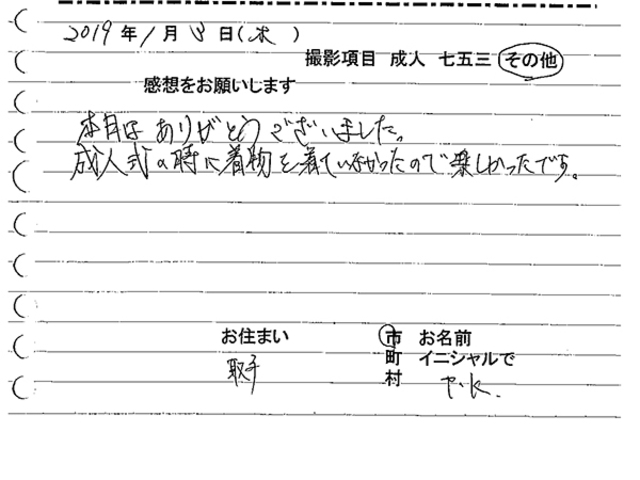 2019年1月3日(木)
撮影項目 成人 七五三 その他
感想をお願いします
本日は ありがとう ございました。
成人式の時に着物を着ていなかったので楽しかったです。
お住まい 市 お名前
町 イニシャルで
取手 村 Y.K.